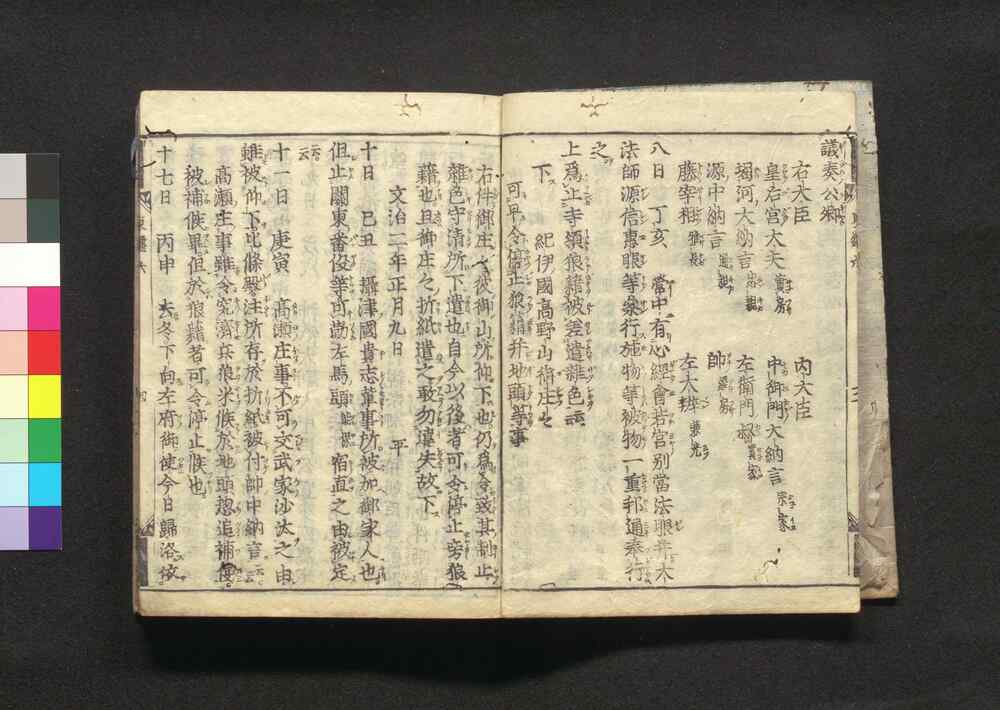 議奏公卿
右大臣 内大臣
皇后宮大夫實房 中御門大納言宗家
堀河大納言忠親 左衛門督實家
源中納言通親 帥經房
藤宰相雅長 左大辨兼光
八日 丁亥 營中有心經會若宮別當法眼幷大
法師源信惠眼等参行施物等被物一重邦通奉行
之
上爲止寺領狼藉被差遣雜色云云
下 紀伊國高野山御庄〻
可早令停止狼藉幷地頭等事
右件御庄〻彼御山所仰下也仍爲令致其制止
雜色守清所下遣也自今以後者可令停止旁狼
藉也且御庄之折紙遣之敢勿違失故下
文治二年正月九日 平
十日 己丑 攝津國貴志輩事所被加御家人也
但止關東番役等可勤左馬頭能保宿直之由被定
云云
十一日 庚寅 高瀬庄事不可交武家沙汰之由
雖被仰下此條殿注所存於折紙被付帥中納言云云
高瀬庄事雖令究濟兵粮米候於地頭惣追補使
被補候畢但於狼藉者可令停止候也
十七日 丙申 去冬下向左府御使今日歸洛依
東鑑六